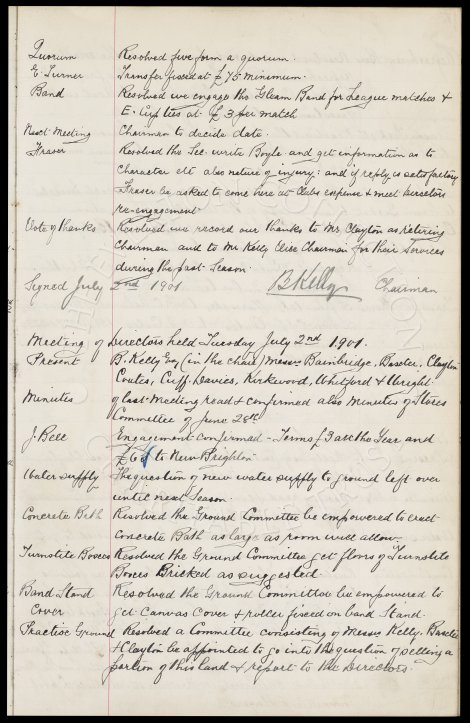 Quorum Resolved five form a quorum.
E. Turner Transfer fixed at £75 minimum.
Band Resolved we engage the Gleam Band for League matches &
E. Cup ties at £3 per match
Next Meeting Chairman to decide date.
Fraser Resolved the Sec. write Boyle and get information as to
character etc also nature of injury: and if reply is satisfactory
Fraser be asked to come here at Clubs expense & meet Directors
re-engagement.
Vote of thanks Resolved we record our thanks to Mr. Clayton as retiring
Chairman and to Mr Kelly Vice Chairman for their services
during the past Season.
Signed July 2nd 1901 B Kelly Chairman
Meeting of Directors held Tuesday July 2nd 1901.
Present B. Kelly Esq (in the chair) Messrs. Bainbridge, Baxter, Clayton
Coates, Cuff, Davies, Kirkwood, Whitford & Wright.
Minutes of last Meeting read & confirmed also Minutes of Stores
Committee of June 28th
J. Bell Engagement confirmed - Terms £3 all the Year and
to New Brighton.
Water supply The question of new water supply to ground left over
until next Season.
Concrete Bath Resolved the Ground Committee be empowered to erect
Concrete Bath as large as room will allow.
Turnstile Boxes Resolved the Ground Committee get floors of Turnstile
Boxes Bricked as suggested
Band Stand Resolved the Ground Committee be empowered to
Cover get Canvas Cover & roller fixed on band Stand.
Practice Ground Resolved a Committee consisting of Messrs Kelly, Baxter
& Clayton be appointed to go into the question of selling a
portion of this land & report to the Directors.